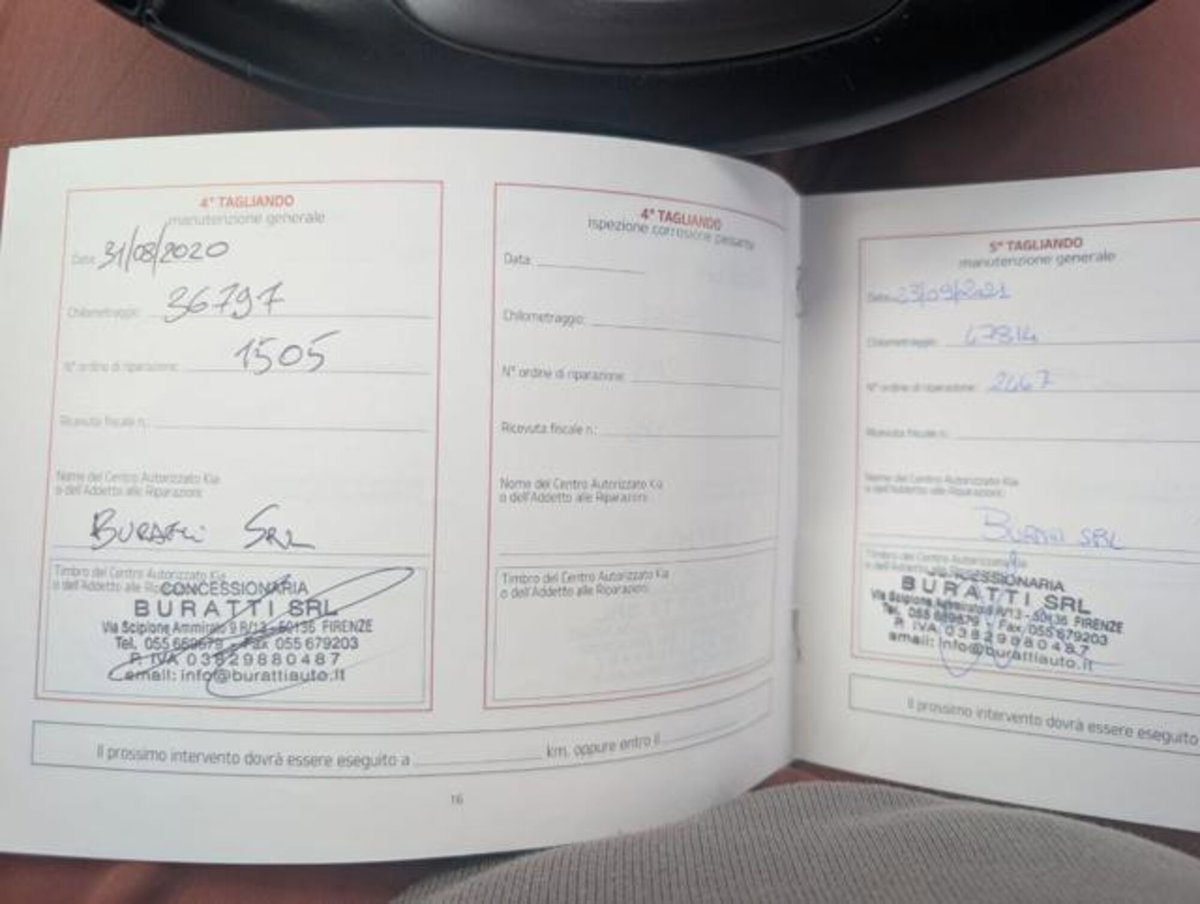 4° TAGLIANDO
manutenzione generale
Data 31/08/2020
Chilometraggio: 36797
N° ordine di riparazione: 1505
Ricevuta fiscale n.:
Nome del Centro Autorizzato Kia
o dell'Addetto alle Riparazioni:
BURATTI SRL
Timbro del Centro Autorizzato Kia
o dell'Addetto alle
CONCESSIONARIA
BURATTI SRL
Via Scipione Ammirato 9 R/13 - 50136 FIRENZE
Tel. 055 669679 - Fax 055 679203
P. IVA 03829880487
email: info@burattiauto.it
4° TAGLIANDO
ispezione corrosione passante
Data:
Chilometraggio:
N° ordine di riparazione:
Ricevuta fiscale n.:
Nome del Centro Autorizzato Kia
o dell'Addetto alle Riparazioni:
Timbro del Centro Autorizzato Kia
o dell'Addetto alle Riparazioni:
Il prossimo intervento dovrà essere eseguito a km. oppure entro il
16
5° TAGLIANDO
manutenzione generale
Data: 23/09/2021
Chilometraggio: 47814
N° ordine di riparazione: 2667
Ricevuta fiscale n.:
Nome del Centro Autorizzato Kia
o dell'Addetto alle Riparazioni:
BURATTI SRL
Timbro del Centro Autorizzato
o dell'Addetto alle
CONCESSIONARIA
BURATTI SRL
Via Scipione Ammirato 9 R/13 - 50136 FIRENZE
Tel. 055 669679 - Fax 055 679203
P. IVA 03829880487
email: info@burattiauto.it
Il prossimo intervento dovrà essere eseguito